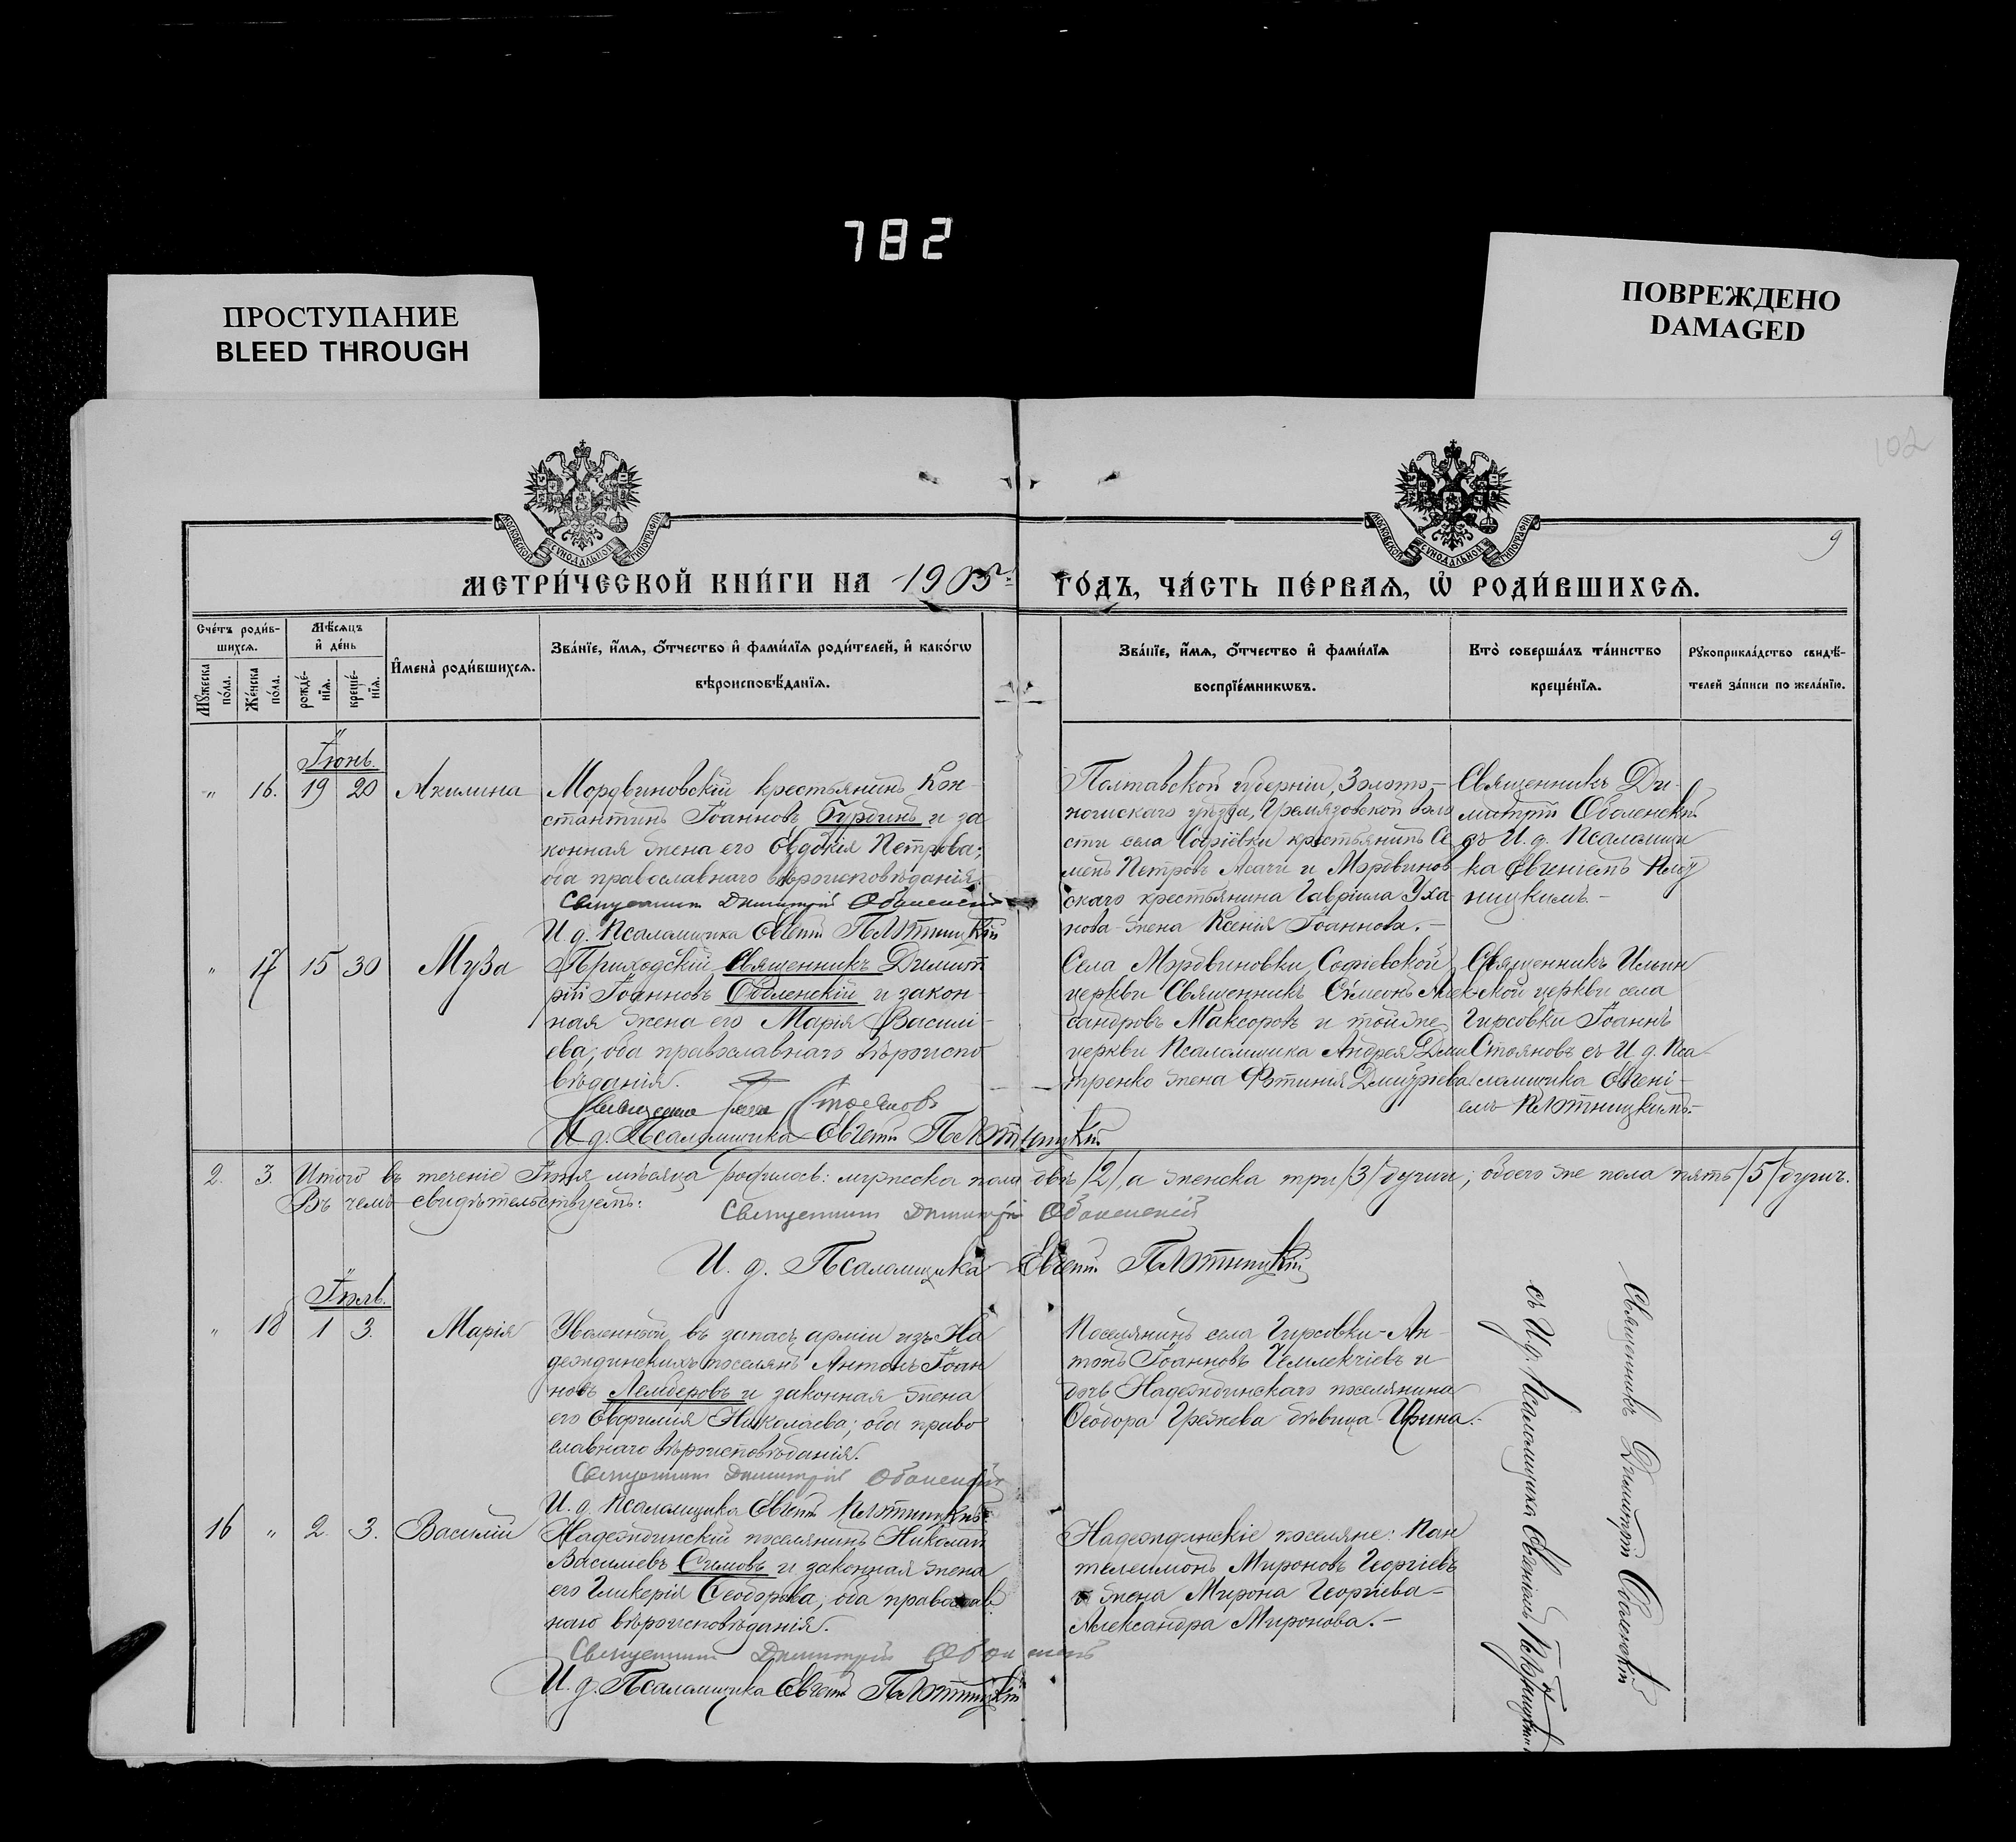 782
ПРОСТУПАНИЕ
BLEED THROUGH
ПОВРЕЖДЕНО
DAMAGED
102
9
МОСКОВСКОЙ СѴНОДАЛЬНОЙ ТИПОГРАФІИ
МОСКОВСКОЙ СѴНОДАЛЬНОЙ ТИПОГРАФІИ
МЕТРИ́ЧЕСКОЙ КНИ́ГИ НА 1905 ГО́ДЪ, ЧА́СТЬ ПЕ́РВАѦ, Ѽ РОДИ́ВШИХСѦ.
Сче́тъ роди́в-
шихсѧ.
Мꙋ́жеска по́ла.
Же́нска по́ла.
Мѣ́сѧцъ и҆ де́нь
рожде́-нїѧ.
креще́-нїѧ.
И҆мена̀ роди́вшихсѧ.
Зва́нїе, и҆́мѧ, ѻ҆́тчество и҆ фами́лїѧ роди́телей, и҆ како́гѡ
вѣроисповѣ́данїѧ.
Зва́нїе, и҆́мѧ, ѻ҆́тчество и҆ фами́лїѧ
воспрїе́мникѡвъ.
Кто̀ соверша́лъ та́инство
креще́нїѧ.
Рꙋкоприкла́дство свидѣ́-
телей за́писи по жела́нїю.
Іюнь.
" 16. 19 20 Акилина
Мордвиновскій крестьянинъ Кон-
стантинъ Іоанновъ Бурдинъ и за
конная жена его Евдокія Петрова;
оба православнаго вѣроисповѣданія.
Священник Димитрій Оболенскій
И. д. Псаломщика Евгеній Плотницкій
Полтавской губерніи, Золото-
ношскаго уѣзда, Гремязовской воло
сти села Софіевки крестьянинъ Се
менъ Петровъ и Мордвинов
скаго крестьянина Гавріила Уха
нова жена Ксенія Іоаннова.-
Священникъ Ди-
митрій Оболенскій
съ И. д. Псаломщи
ка Евгеніемъ Плот
ницкимъ.-
" 17 15 30 Муза
Приходскій Священникъ Димит
рій Іоанновъ Оболенскій и закон-
ная жена его Марія Василі-
ева; оба православнаго вѣроиспо
вѣданія.
Священникъ Іоаннъ Стояновъ
И д. Псаломщика Евгеній Плотницкій
Села Мордвиновки, Софіевской
церкви Священникъ Сѵмеонъ Алек-
сандровъ и тойже
церкви Псаломщика Андрея Дми
тренко жена Фотинія Дмитріева
Священникъ Ильин
ской церкви села
Гирсовки Іоаннъ
Стояновъ съ И. д. Пса-
ломщика Евгені-
емъ Плотницкимъ.-
2. 3. Итого въ теченіе Іюня мѣсяца родилось: мужеска пола двѣ /2/, а женска три /3/ души; обоего же пола пять /5/ душъ.
Въ чемъ свидѣтельствуемъ:
Священник Димитрій Оболенскій
И. д. Псаломщика Евгеній Плотницкій
Іюль.
" 18 1 3. Марія
Уволенный въ запасъ арміи изъ На
деждинскихъ поселянъ Антонъ Іоан
новъ Лемберовъ и законная жена
его Евфимія Николаева; оба право
славнаго вѣроисповѣданія.
Священник Димитрій Оболенскій
И. д. Псаломщика Евгеній Плотницкій
Поселянинъ села Гирсовки - Ан-
тонъ Іоанновъ и
дочь Надеждинскаго поселянина
Ѳеодора девица Ирина.-
16 " 2. 3. Василій
Надеждинскій поселянинъ Николай
Василіевъ и законная жена
его Гликерія Ѳеодорова; оба православ
наго вѣроисповѣданія.
Священник Димитрій Оболенскій
И. д. Псаломщика Евгеній Плотницкій
Надеждинскіе поселяне: Пан
телеимонъ Мироновъ Георгіевъ
и жена Мирона Георгіева-
Александра Миронова.-
Священникъ Димитрій Оболенскій
съ И. д. Псаломщика Евгеніемъ Плотницкимъ